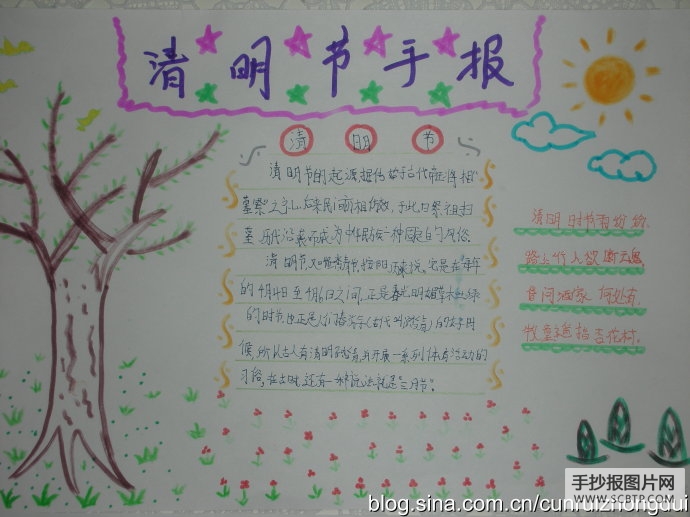 清明节手报
清明节
清明节的起源据传始于古代帝王将相
墓祭之礼,后来民间相仿效,于此日祭祖扫
墓,历代沿袭而成为中华民族一种固定的风俗。
清明节,又叫踏青节,按阳历来说,它是在每年
的4月4日至4月6日之间,正是春光明媚草木吐绿
的时节,也正是人们春游(古代叫踏青)的好时
候,所以古人有清明踏青,并开展一系列体育活动的
习俗。在古时,还有一种说法就是"三月节"。
清明时节雨纷纷,
路上行人欲断魂。
借问酒家何处有,
牧童遥指杏花村。
手抄报图片网
WWW.SCBTP.COM
blog.sina.com.cn/cunruizhongdui